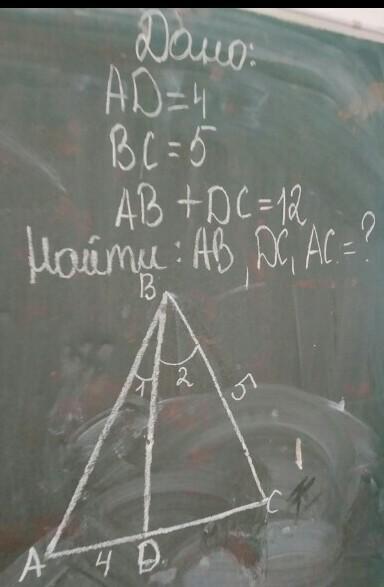 Дано:
AD=4
BC=5
AB+DC=12
Найти: AB, DC, AC=?
B
1 2
5
C
A 4 D